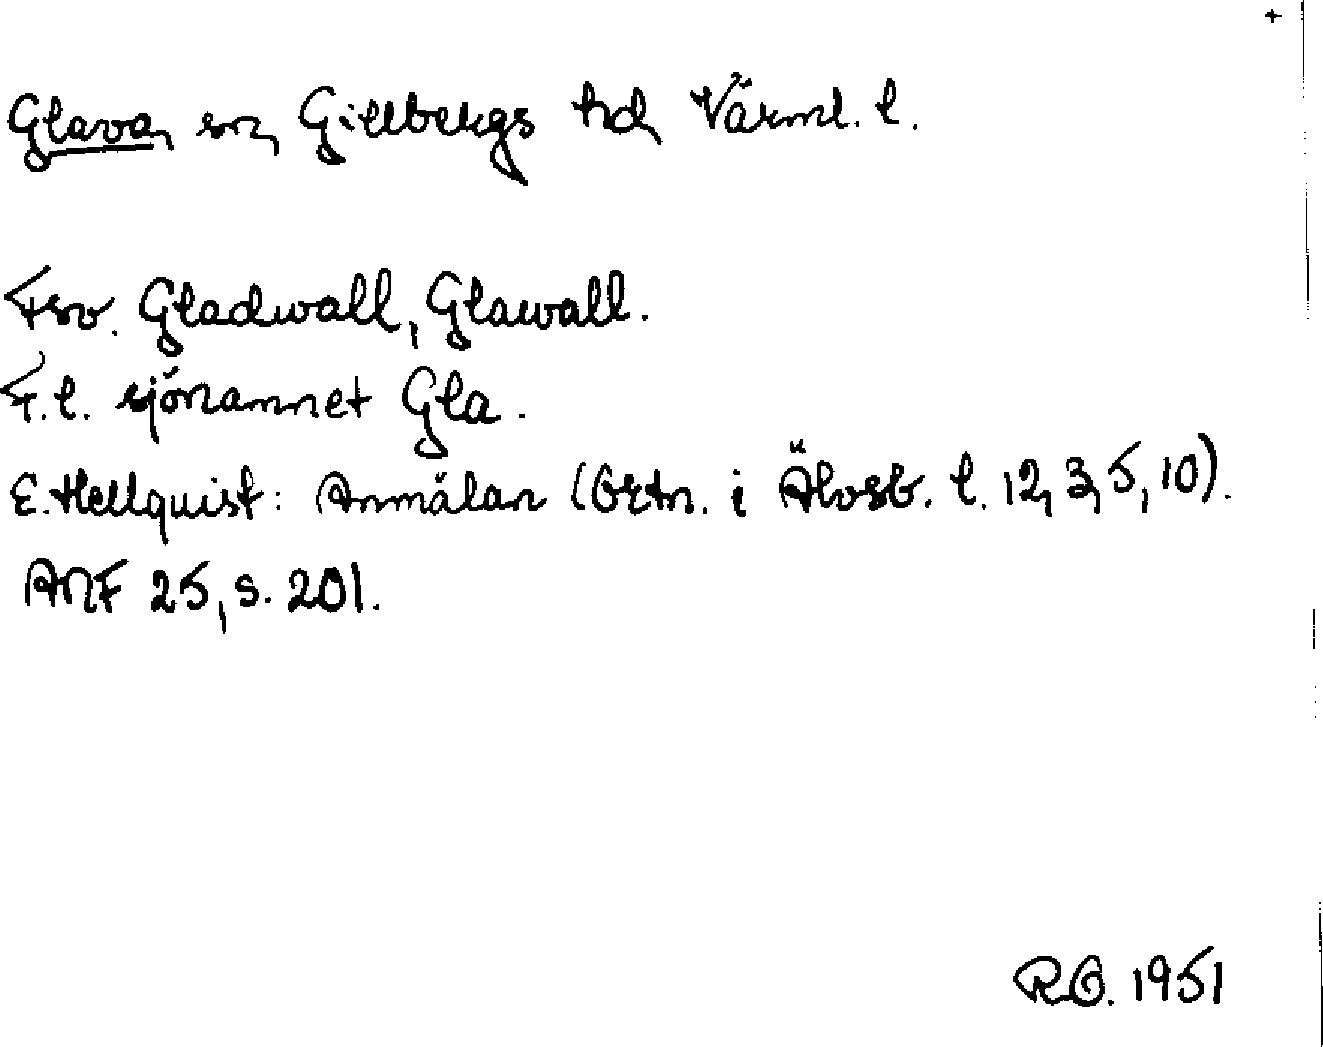 +
Glava, sn, Gillbergs hd, Värml. l.
Fsv. Gladwall, Glawall.
F.l. sjönamnet Gla.
E. Hellquist: Anmälan (Ortn. i Älvsb. l. 12, 3, 5, 10).
ANF 25, s. 201.
R.O. 1951